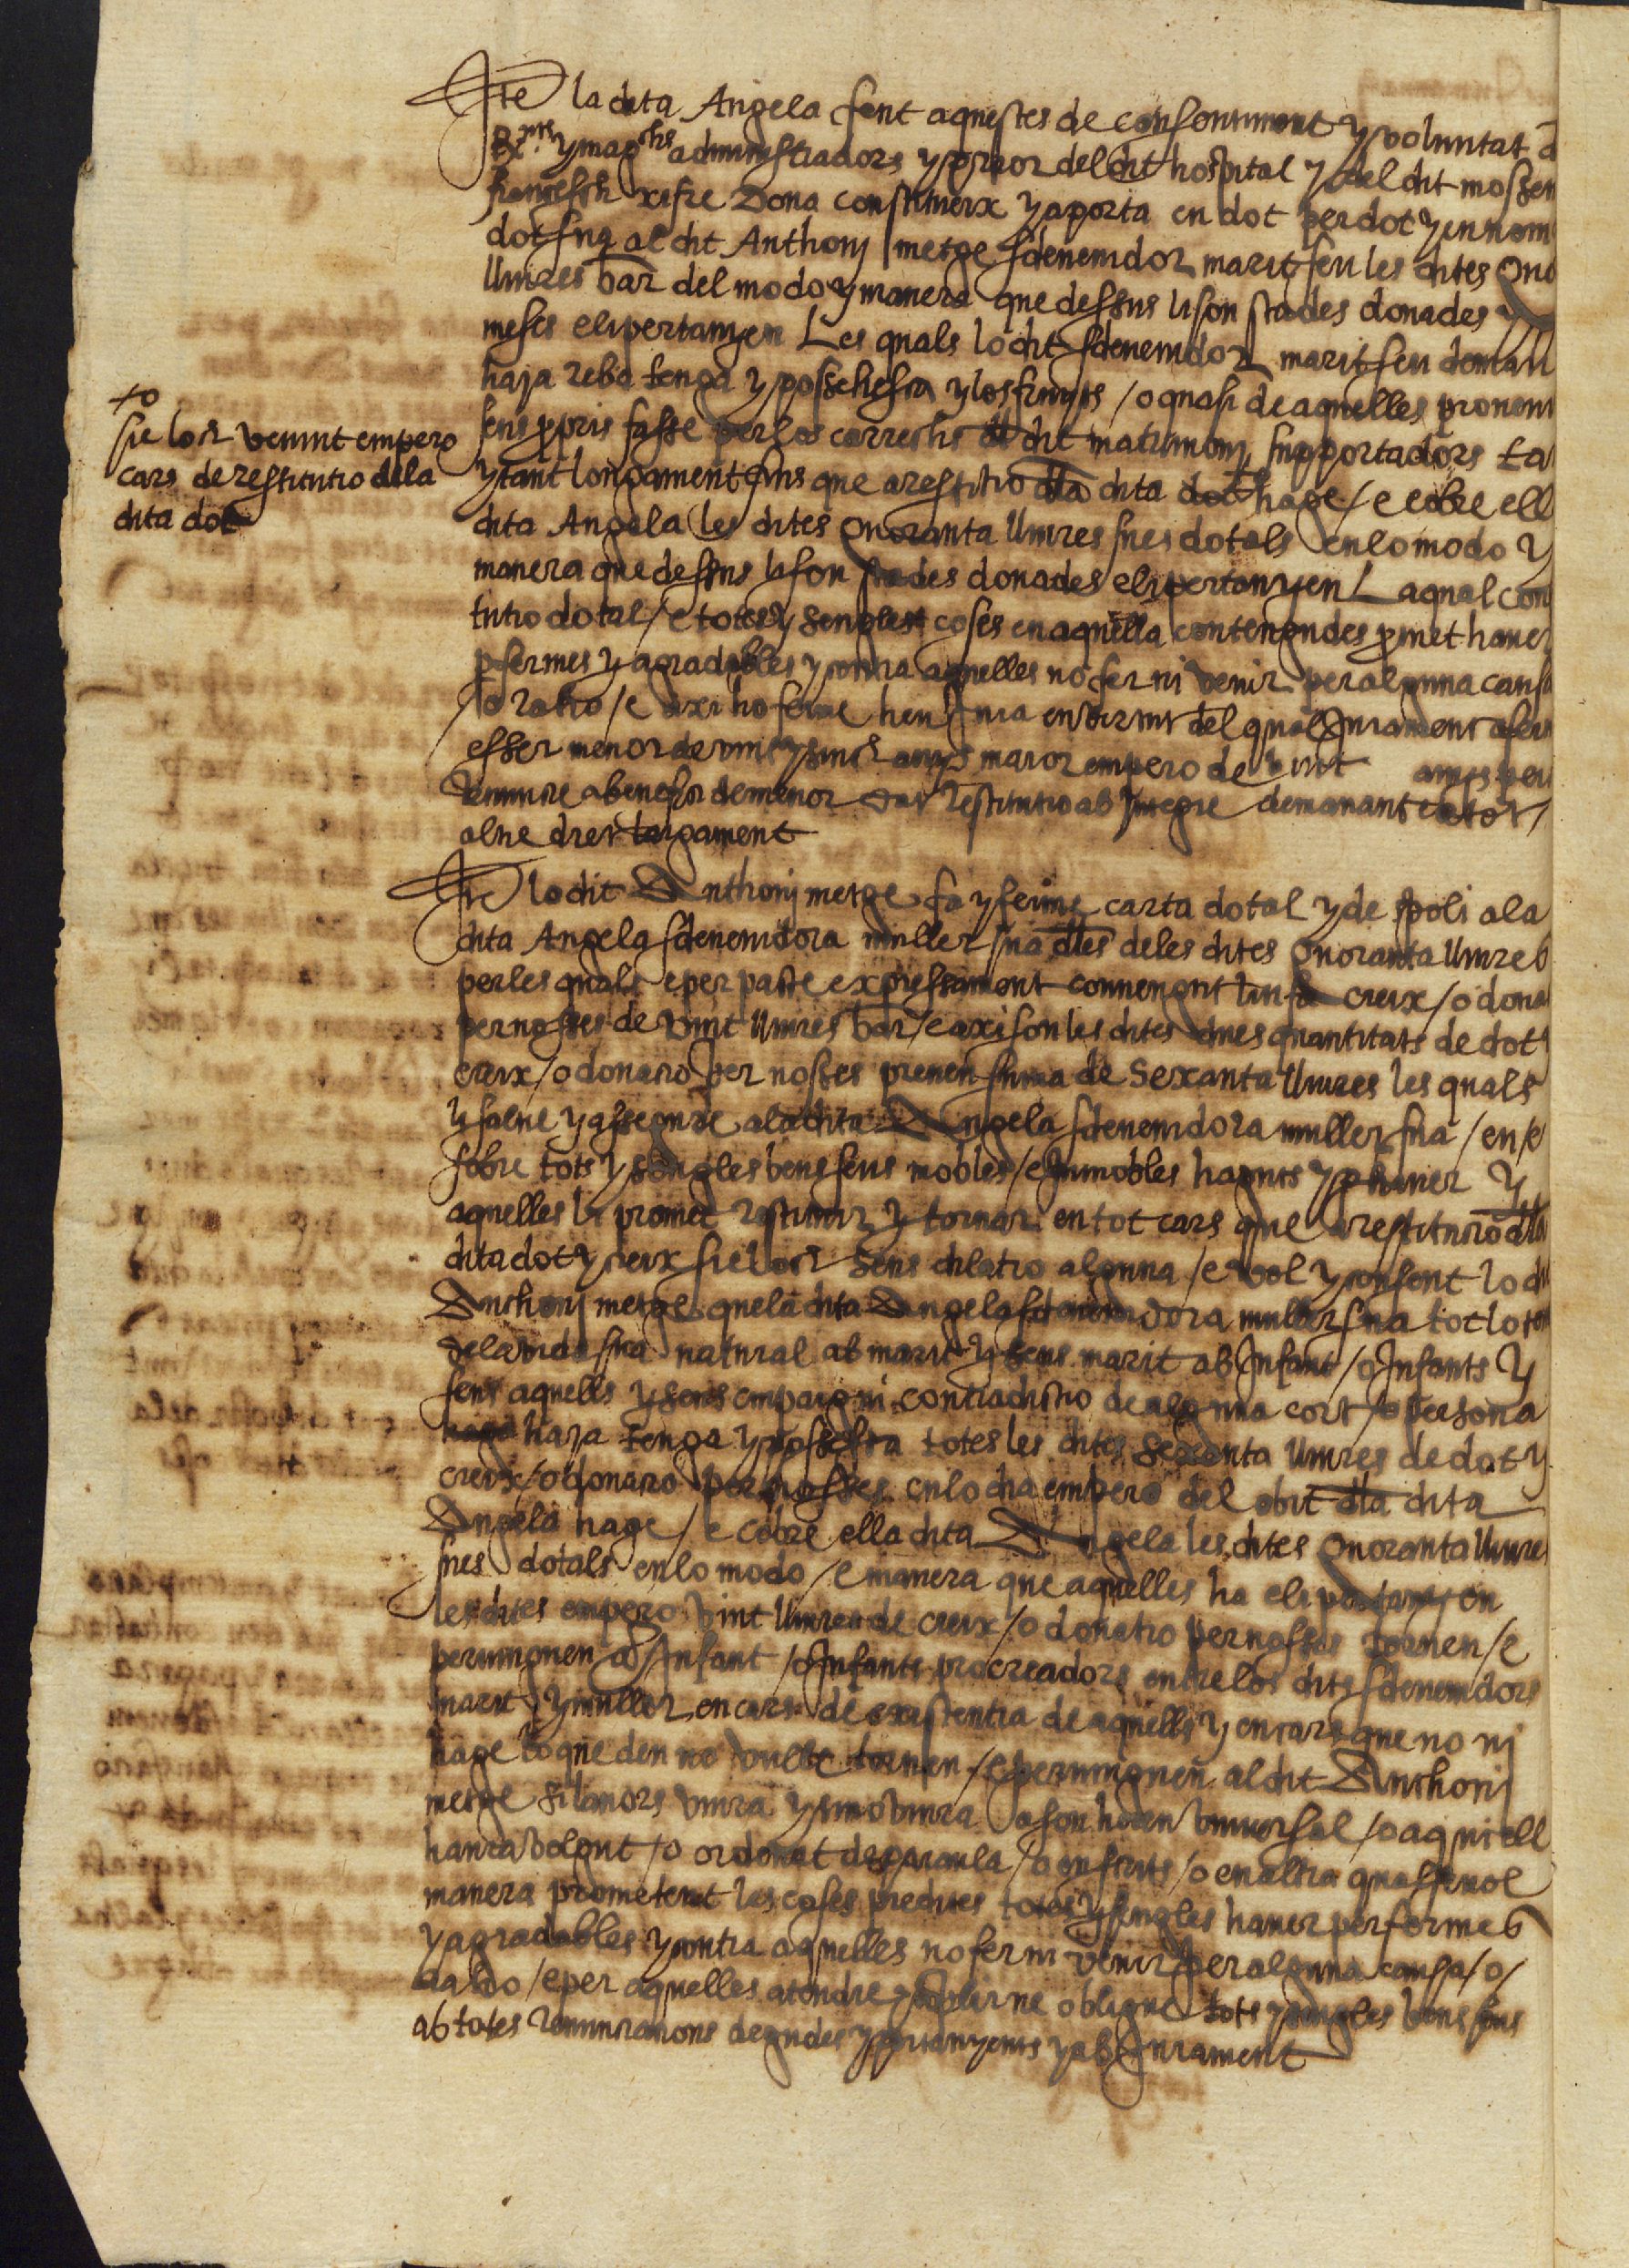 Ite la dita Angela fent aquestes de consentiment y voluntat d
R.nts y magchs administradors y prior del dit hospital y del dit mossen
francesch xifre Dona constitueix y aporta en dot per dot y en nom
dot sua al dit Anthonj metge sdevenidor marit seu les dites Qno
lliures bar del modo y manera que dessus li son stades donades y
meses e li pertanyen Les quals lo dit sdevenidor marit seu deman
haja reba tenga y possehesca y los fruyts / o quasi de aquelles pronom
seus ppris fasse per los carrechs dl dit matrimonj supportadors ta
y tant longament fins que a restitutio dla dita dot hage / e cobre ell
dita Angela les dites Quoranta lliures sues dotals en lo modo y
manera que dessus li son stades donades e li pertanyen La qual con
tutio dotal / e totes y sengles coses en aquella contengudes pmet haver
p fermes y agradables y contra aquelles no fer ni venir per alguna causa
/ o raho / e axi ho ferme hen Jura en virtut del qual Jurament afer
esser menor de vint y sinch anys maior empero de vint anys per
Renuncie a benefici de menor dat restitutio ab Integre demanant e a tot /
altre dret largament
to
sie loch venint empero
cars de restitutio dela
dita dot
Ite lo dit Anthonj metge fa y ferme carta dotal y de spoli a la
dita Angela sdevenidora muller sua dles deles dites Quoranta lliures
per les quals e per pacte expressament convengut li nfa creix / o dona
per nosses de vint lliures bar / e axi son les dites dues quantitats de dot
creix / o donatio per nosses prenen suma de Sexanta lliures les quals
y salve y assegure a la dita Angela sdevenidora muller sua / en / e
sobre tots y sengles bens seus mobles / e Immobles haguts y p haver y
aquelles li promet restituir y tornar en tot cars que a restitutio dla
dita dot y creix sie loch sens dilatio alguna / e vol y consent lo di
Anthonj metge que la dita Angela sdevenidora muller sua tot lo tem
de la vida sua natural ab marit y sens marit ab Infant / o Infants y
sens aquells y sens empaig ni contradictio de alguna cort / o persona
haja tenga y possehesca totes les dites Sexanta lliures de dot y
creix / o donatio per nosses en lo dia empero del obit dla dita
Angela hage / e cobre ella dita Angela les dites Quoranta lliures
sues dotals en lo modo / e manera que aquelles ha e li pertanyen
les dites empero vint lliures de creix / o donatio per nosses tornen / e
pervinguen al Infant / o Infants procreadors entre los dits sdevenidors
marit y muller en cars de existentia de aquells y en cars que no ni
hage lo que deu no vulle tornen / e pervinguen al dit Anthonj
metge si lanors viura y sino viura a son hereu universal / o a qui ell
haura volgut / o ordenat de paraula / o en scrits / o en altra qualsevol
manera prometent les coses predites totes y sengles haver per fermes
y agradables y contra aquelles no fer ni venir per alguna causa / o /
raho / e per aquelles atendre y complir ne obligue tots y sengles bens seus
ab totes renunciations degudes y pertanyents y ab Jurament